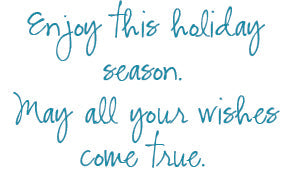 Enjoy this holiday
season.
May all your wishes
come true.